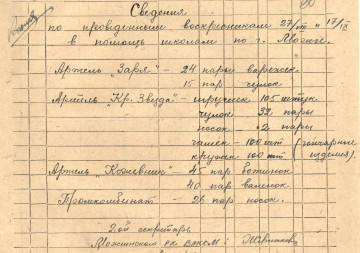 Сведения
по проведенным воскресникам 27/VIII и 17/IX
в помощь школам по г. Можге.
Артель "Заря" - 24 пары варежек
15 пар чулок
Артель "Кр. Звезда" - игрушек 105 штук
чулок 32 пары
носок - 12 пары
чашек - 100 шт (гончарные
кружек 100 шт изделия)
Артель "Кожевник" - 45 пар ботинок
40 пар валенок
Промкомбинат - 26 пар носок.
2ой секретарь
Можгинского РК ВЛКСМ: